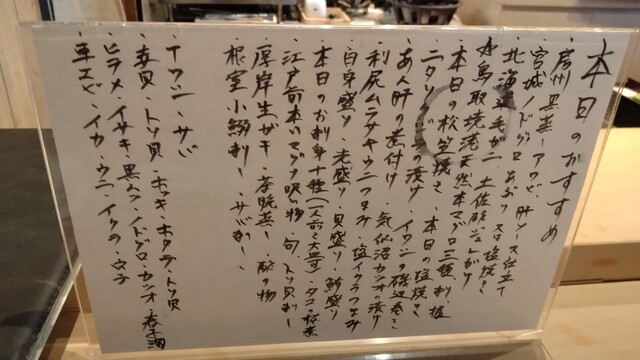 本日のおすすめ
・房州黒蒸しアワビ、肝ソース仕立て
・宮城ノドグロあぶり 又は塩焼き
・北海道毛ガニ 土佐酢ジュレがけ
鳥取境港天然本マグロ三種、刺、握
本日の松笠焼き・本日の塩焼き
ニタリ の漬け・イワシの磯辺巻き
・あん肝の煮付け・気仙沼カツオの漬け
・利尻ムラサキウニつまみ・塩イクラつまみ
・白身盛り・光盛り・貝盛り・鯖盛り
・本日のお刺身十種(一人前〜大皿可)・タコ
・江戸前 吸い物・旬、トリ貝刺し
・厚岸生ガキ・茶碗蒸し・酢の物
・根室小鰯刺し・サバ刺し
・イワシ・サバ
・青貝・トリ貝・ホッキ・ホタテ・トリ貝
・ヒラメ・イサキ・黒ムツ・ノドグロ・カツオ・春子鯛
・車エビ・イカ・ウニ・イクラ・穴子